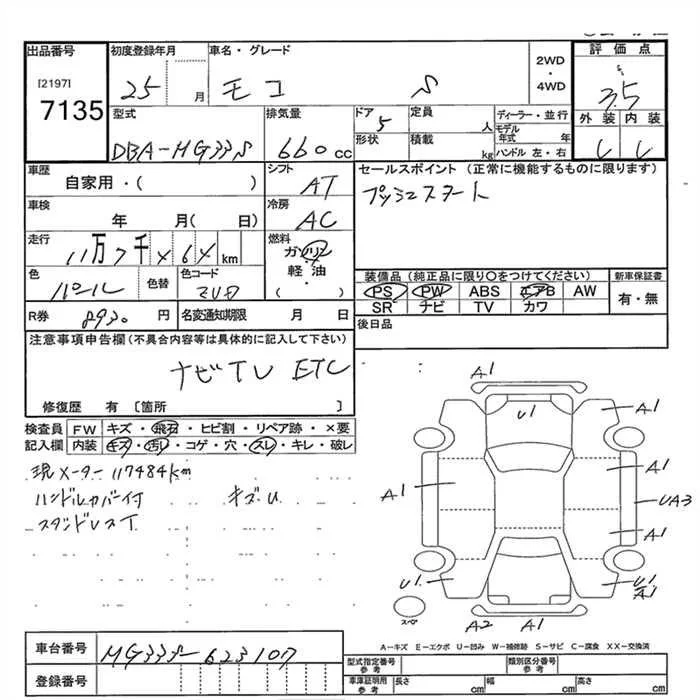 出品番号
[2197]
7135
初度登録年月
25 月
車名・グレード
モコ S
2WD
・
4WD
評価点
3.5
外装 内装
型式
DBA-MG33S
排気量
660 cc
ドア
5
形状
定員 人
積載 kg
ディーラー・並行
モデル年式 年
ハンドル 左・右
車歴
自家用・( )
シフト
AT
セールスポイント (正常に機能するものに限ります)
プッシュスタート
車検
年 月( 日)
冷房
AC
走行
11万7千 km
燃料
ガソリン
軽油
( )
色
パール
色替
色コード
ZVD
装備品 (純正品に限り〇をつけてください)
PS PW ABS エアB AW
SR ナビ TV カワ
新車保証書
有・無
R券 8930 円
名変通知期限 月 日
後日品
注意事項申告欄 (不具合内容等は具体的に記入して下さい)
ナビTV ETC
修復歴 有 〔箇所 〕
検査員 FW キズ・飛石・ヒビ割・リペア跡・×要
記入欄 内装 キズ・汚レ・コゲ・穴・スレ・キレ・破レ
現メーター117484km
ハンドルカバー付 キズU
スタンドレスT
A1
U1 A1
A1
A1
UA3
A1
U1
U1
A1
スペア
A2 A1
A-キズ E-エクボ U-凹み W-補修跡 S-サビ C-腐食 XX-交換済
車台番号 MG33S-623107
登録番号
型式指定番号 参考
類別区分番号 参考
車庫証明用 参考 長さ cm 幅 cm 高さ cm